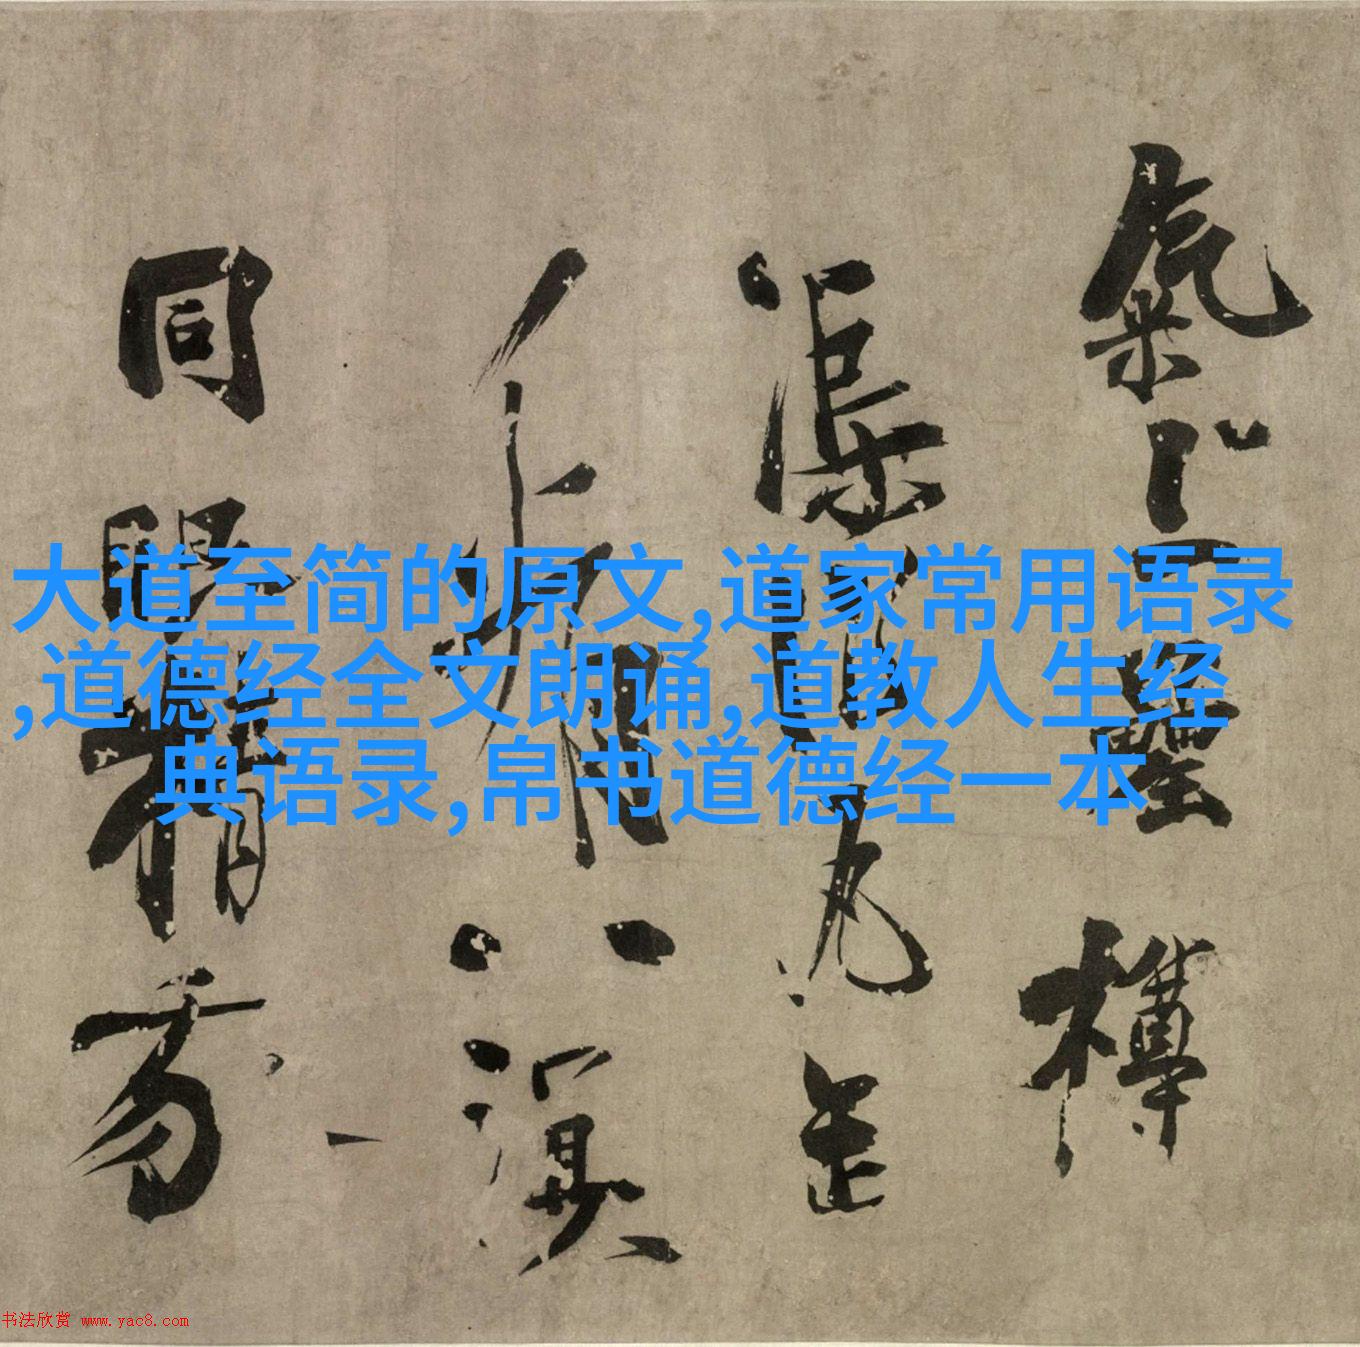 大道至简的原文,道家常用语录
,道德经全文朗诵,道教人生经
典语录,帛书道德经一本
氣 樽
渠 九
八溟
同眼精
书法欣赏 www.yac8.com